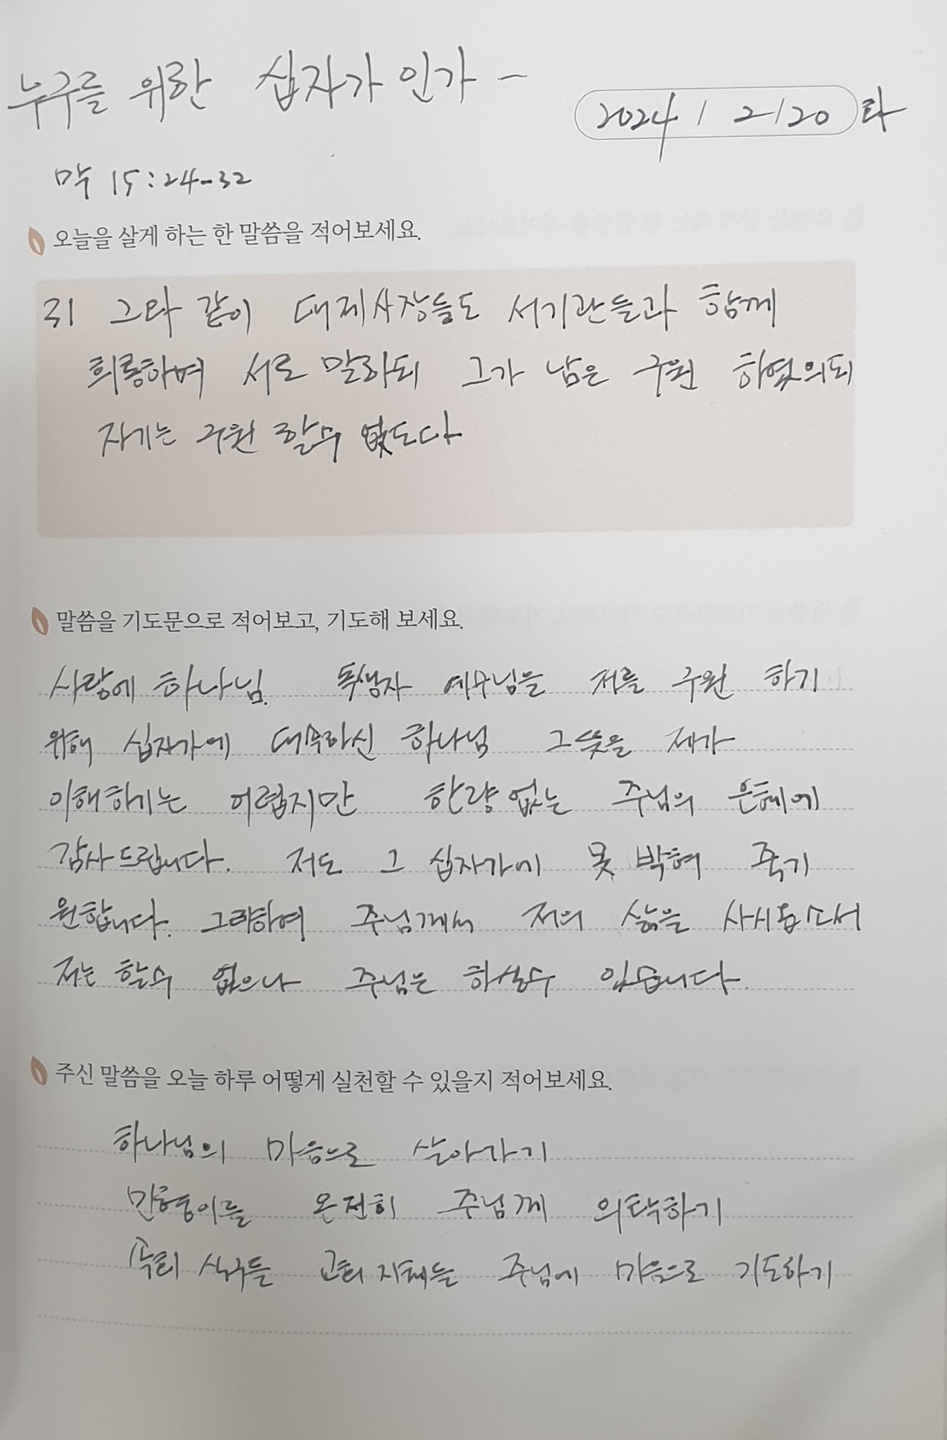 누구를 위한 십자가 인가 -
2024 / 2/20 화
막 15:24-32
오늘을 살게 하는 한 말씀을 적어보세요.
31 그와 같이 대제사장들도 서기관들과 함께
희롱하며 서로 말하되 그가 남은 구원 하였으되
자기는 구원 할수 없도다
말씀을 기도문으로 적어보고, 기도해 보세요.
사랑에 하나님. 독생자 예수님을 저를 구원 하기
위해 십자가에 대속하신 하나님 그 뜻을 제가
이해하기는 어렵지만 한량 없는 주님의 은혜에
감사드립니다. 저도 그 십자가에 못 박혀 죽기
원합니다. 그리하여 주님께서 저의 삶을 사시옵소서
저는 할수 없으나 주님은 하실수 있습니다.
주신 말씀을 오늘 하루 어떻게 실천할 수 있을지 적어보세요.
하나님의 마음으로 살아가기
온전히 주님께 의탁하기
식구들 교회 지체들 주님에 마음으로 기도하기